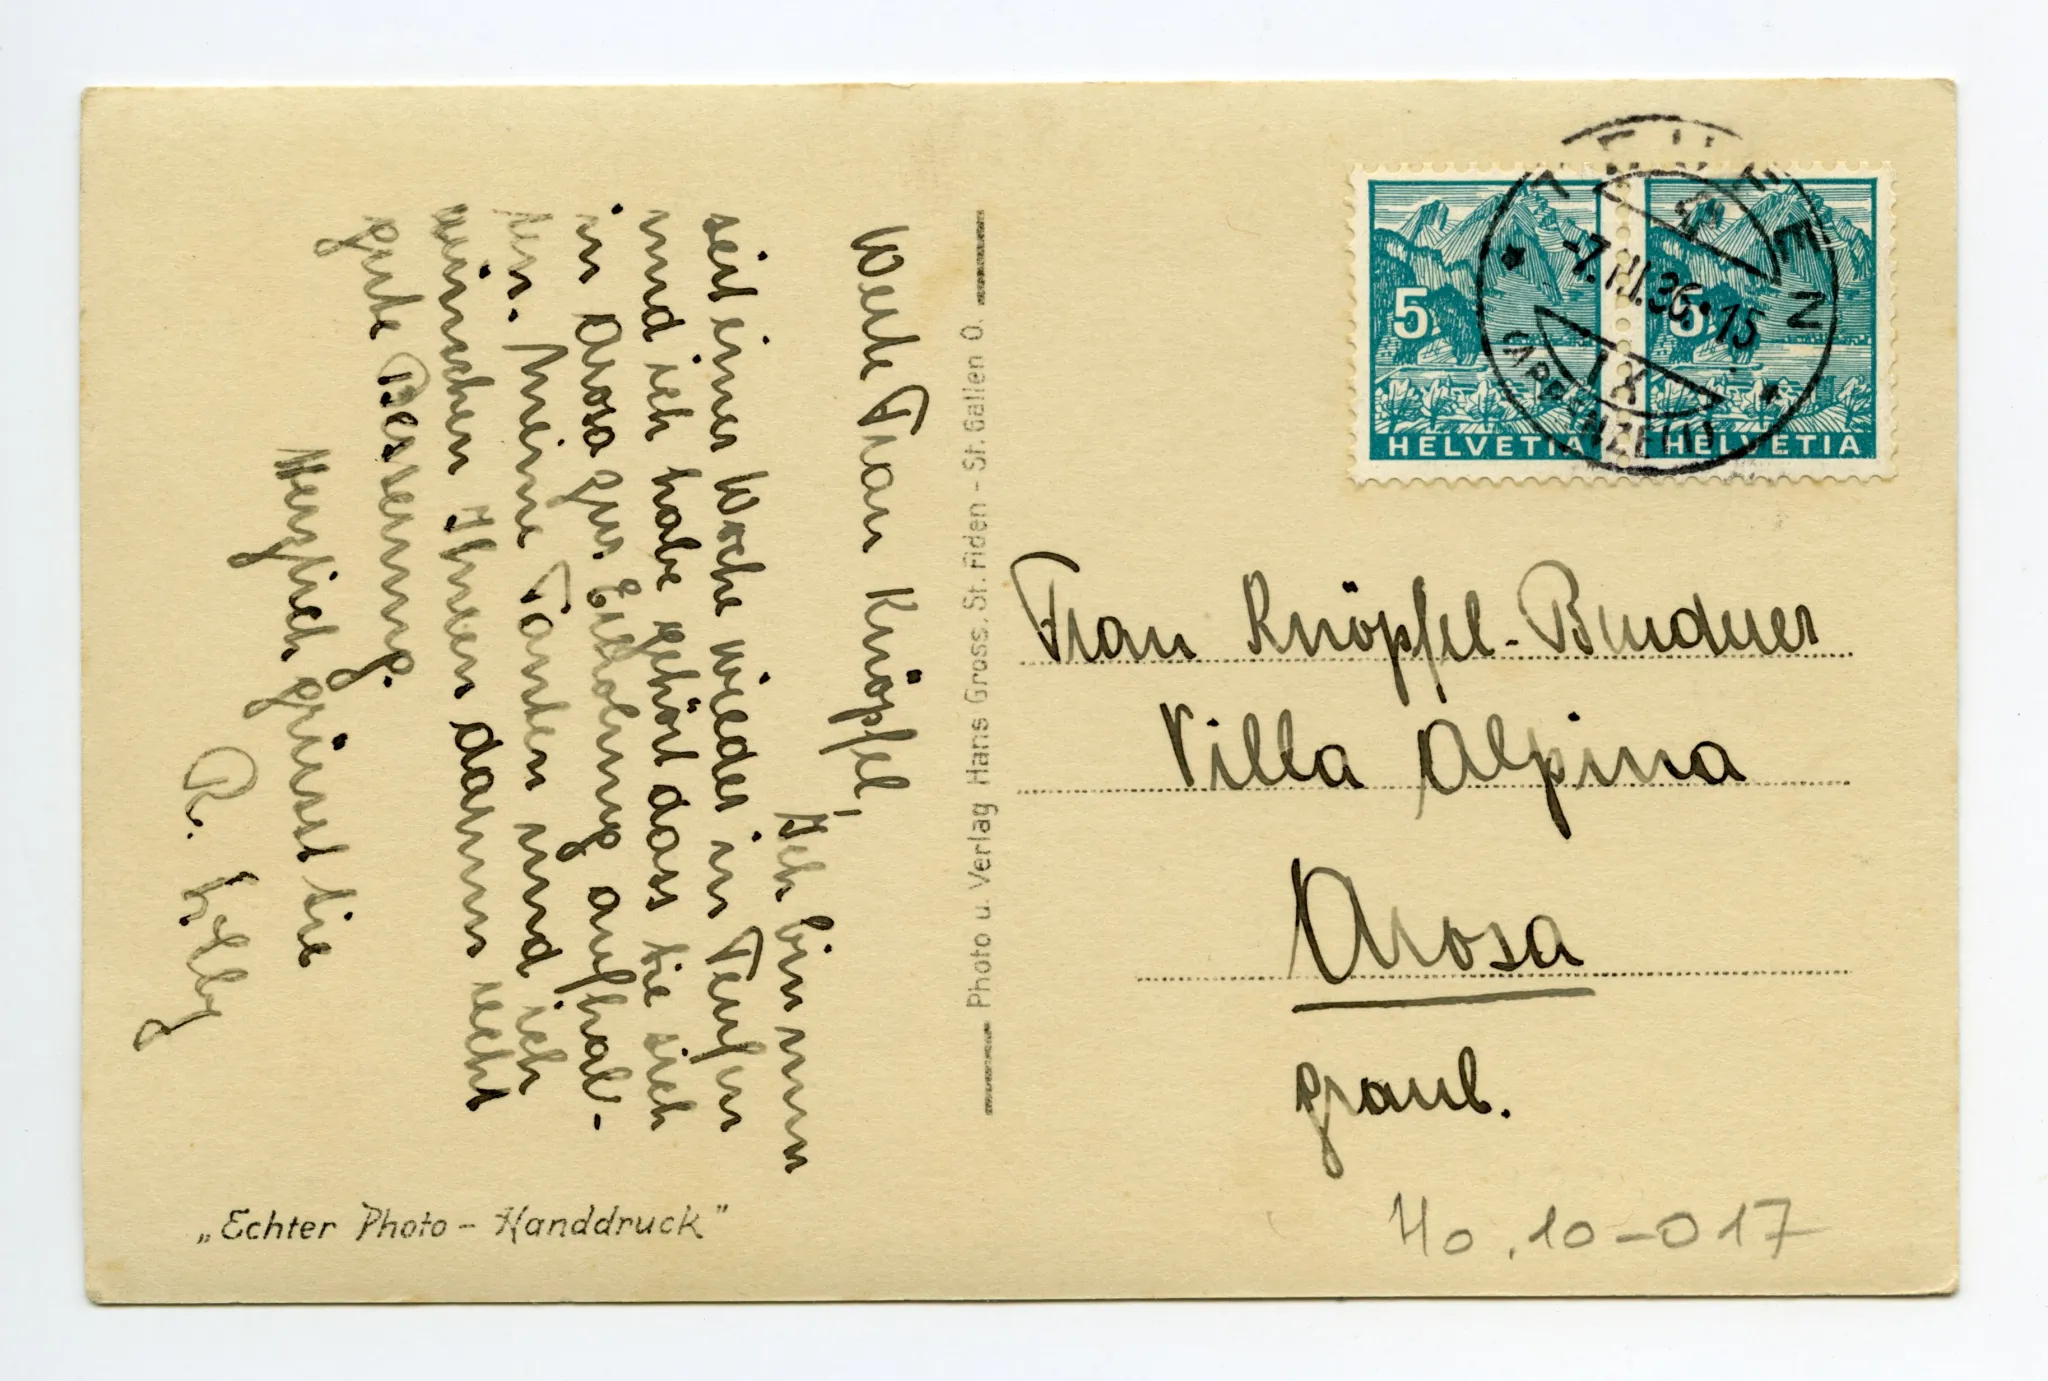 Werte Frau Knöpfel,
Ich bin nun
seit einer Woche wieder in Teufen
und ich habe gehört dass Sie sich
in Arosa zur Erholung aufhal-
ten. Meine Tanten und ich
wünschen Ihnen darum recht
gute Besserung.
Herzlich grüsst Sie
R.
„Echter Photo - Handdruck"
Photo u. Verlag Hans Gross, St. Fiden - St. Gallen O.
TEUFEN
-7. VII. 36. 15
(APPENZELL)
5 HELVETIA
5 HELVETIA
Frau Knöpfel-Bruderer
Villa Alpina
Arosa
graub.
Ho. 10-017